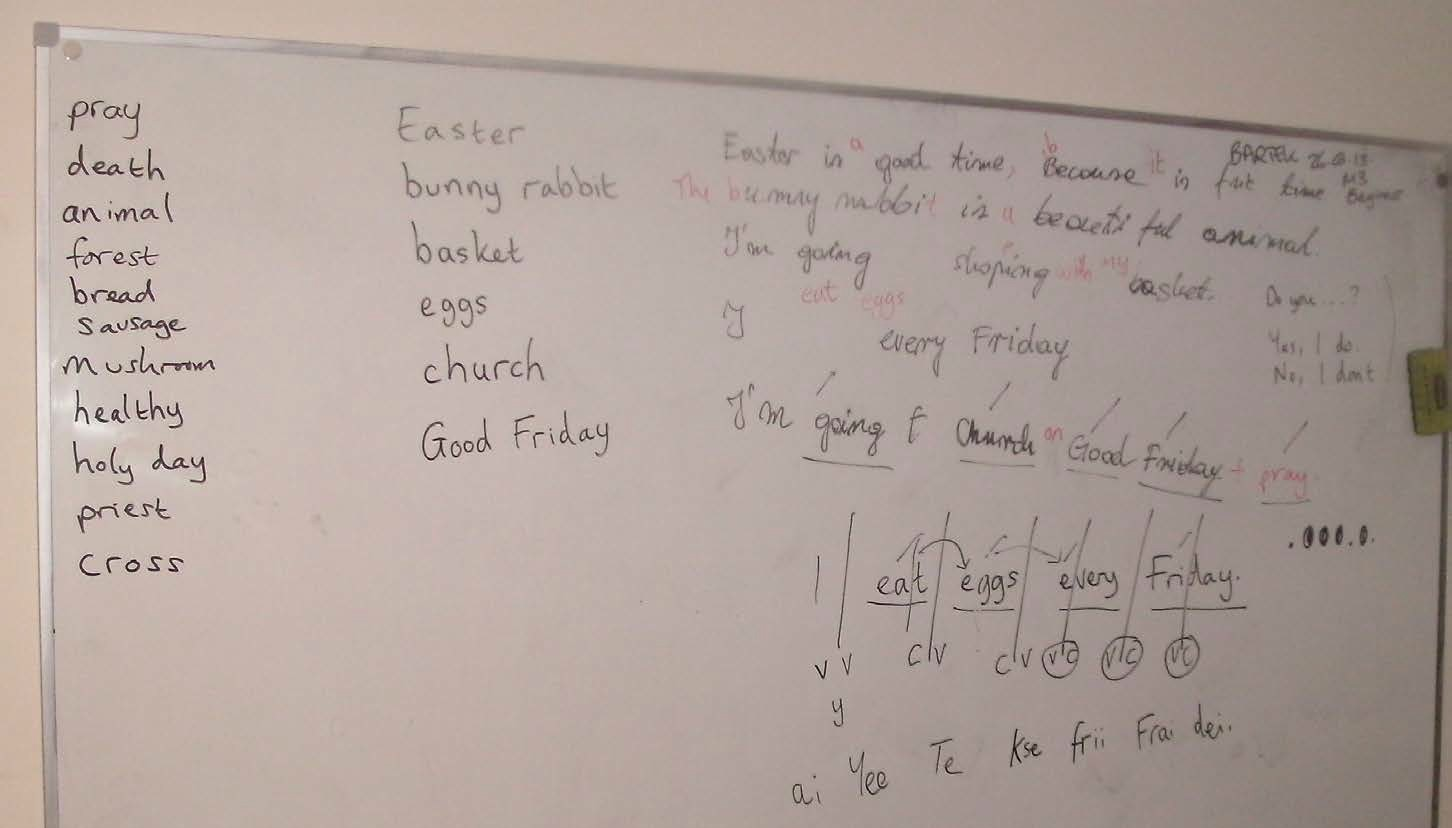 pray
death
animal
forest
bread
sausage
mushroom
healthy
holy day
priest
cross
Easter
bunny rabbit
basket
eggs
church
Good Friday
BARTEK
M3
Easter is a good time, b Becouse it is time
The bunny rabbit is a beauti ful animal.
I'm going shoping with my basket.
eat eggs
I every Friday
Do you...?
Yes, I do.
No, I dont
I'm going t church on Good Friday + pray.
I eat eggs every Friday.
V V C V C V V C V C V C
y
ai Yee Te kse frii Frai dei.